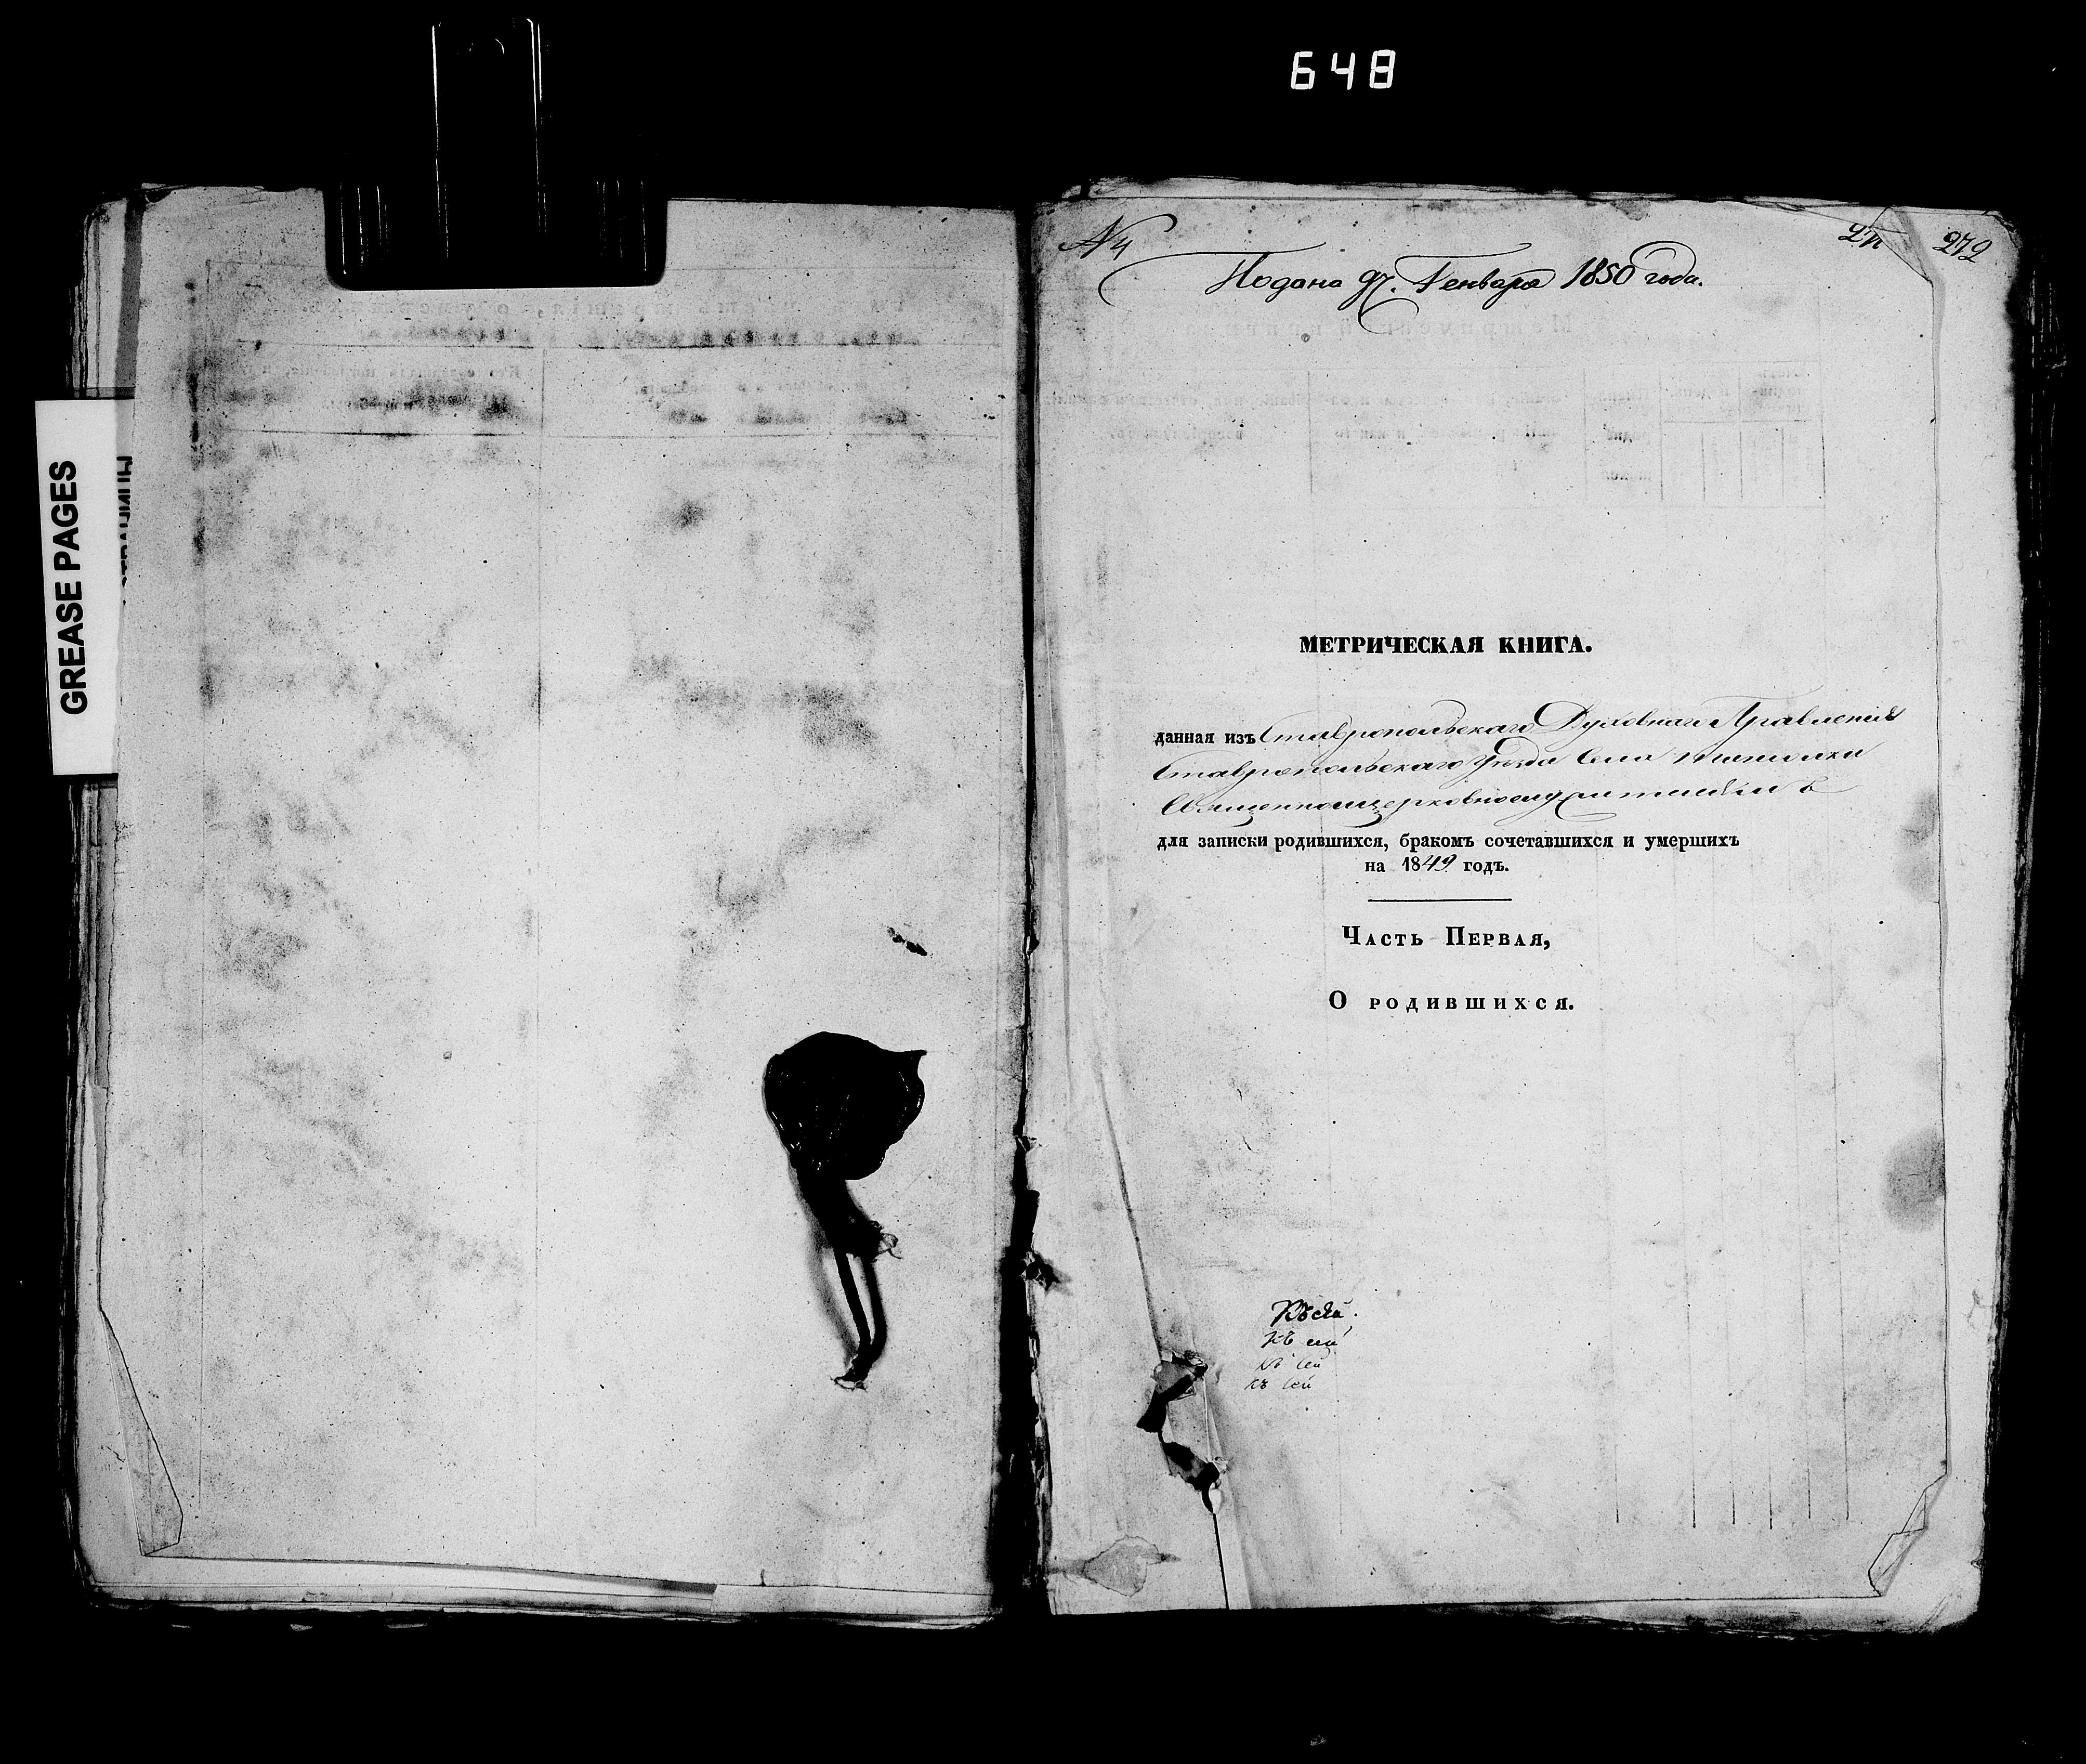 648
GREASE PAGES
№ 4
272
Подана 97. Генваря 1850 года.
МЕТРИЧЕСКАЯ КНИГА.
данная изъ Ставропольскаго Духовнаго Правленія
Ставропольскаго Уѣзда Села
Священноцерковнослужителямъ
для записки родившихся, бракомъ сочетавшихся и умершихъ
на 1849 годъ.
Часть Первая,
О родившихся.
Къ сей
къ сей
къ сей
къ сей